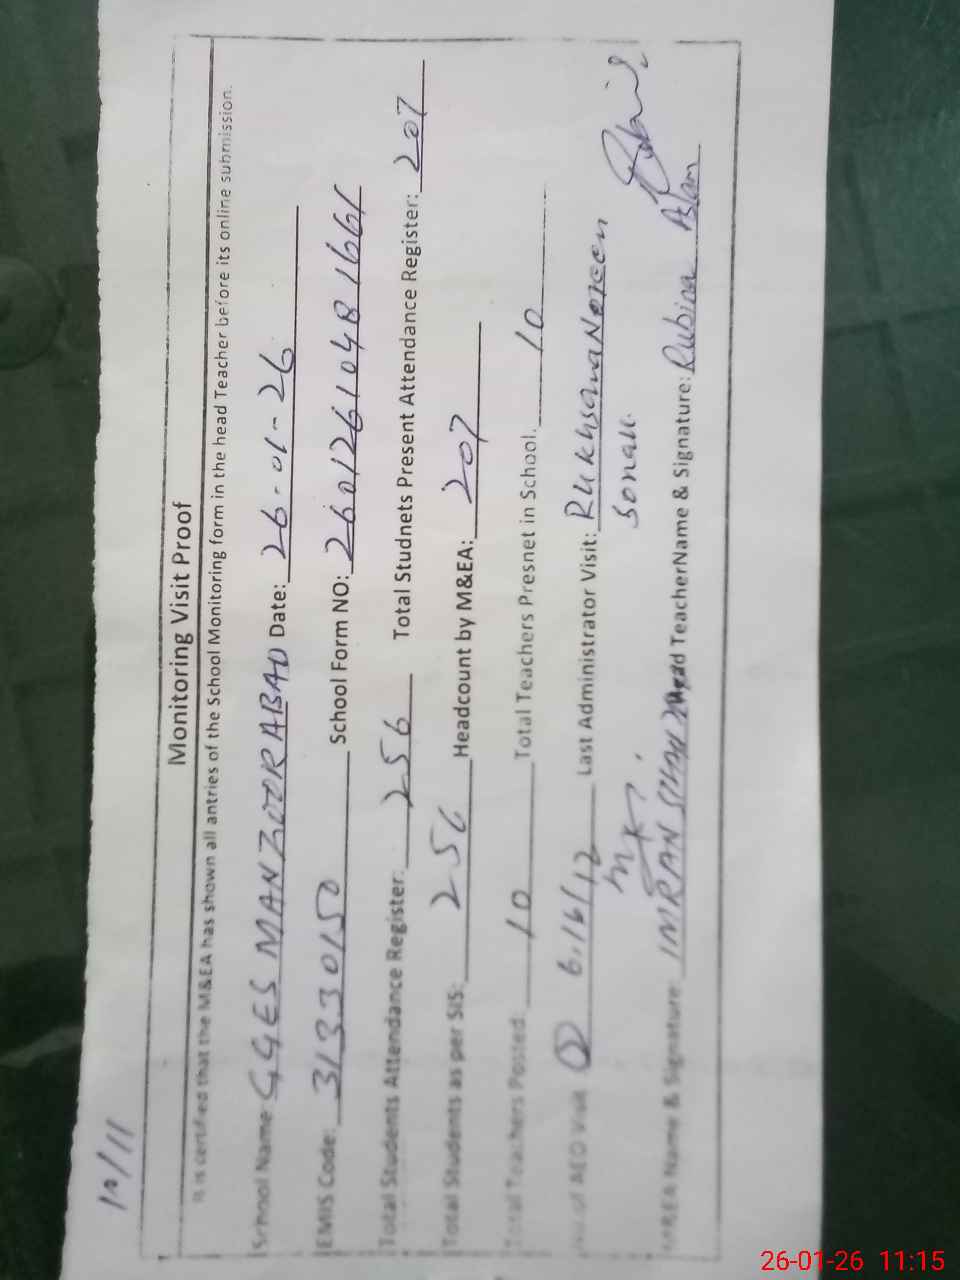 10/11
Monitoring Visit Proof
It is certified that the M&EA has shown all antries of the School Monitoring form in the head Teacher before its online submission.
School Name: GGES MANZOORABAD Date: 26-01-26
EMIS Code: 31330150 School Form NO: 2601261048 1661
Total Students Attendance Register: 256 Total Studnets Present Attendance Register: 207
Total Students as per SIS: 256 Headcount by M&EA: 207
Total Teachers Posted: 10 Total Teachers Presnet in School. 10
of AEO Visit 6,16/12 Last Administrator Visit: Rukhsana Noreen
Name & Signature: IMRAN Head TeacherName & Signature: Rubina Aslam
26-01-26 11:15